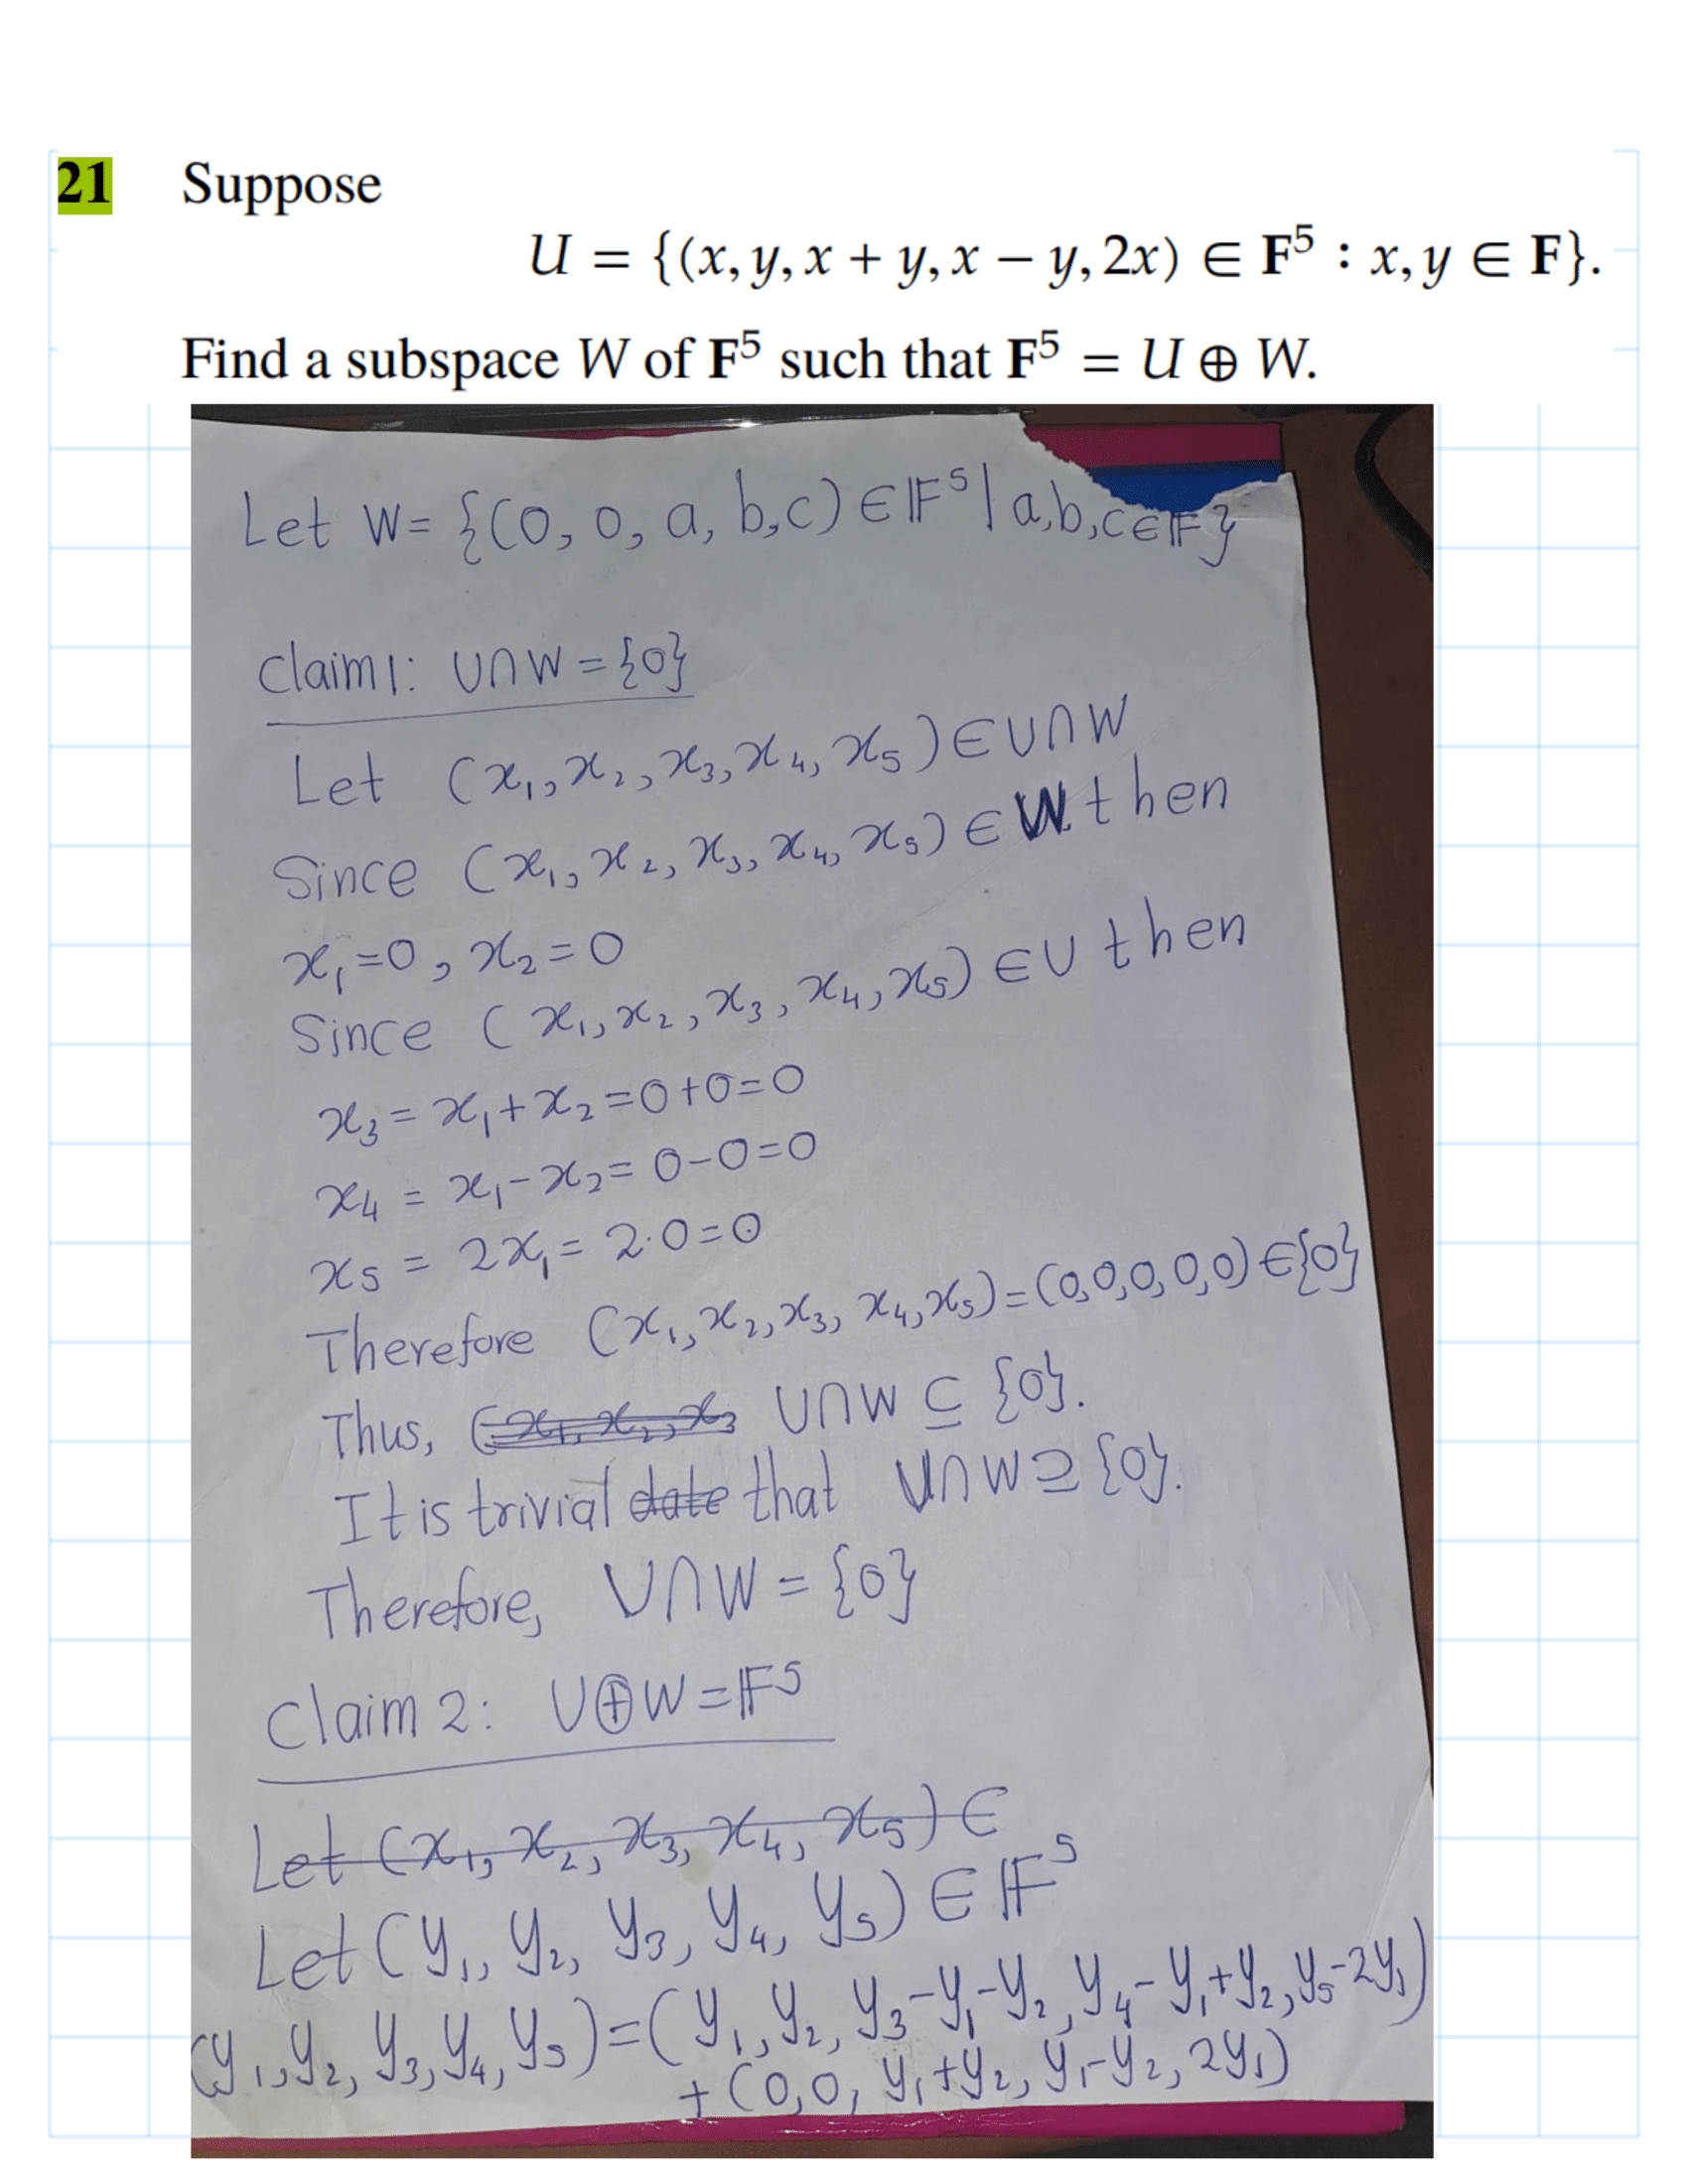 21 Suppose
U = {(x, y, x + y, x − y, 2x) ∈ F⁵ : x, y ∈ F}.
Find a subspace W of F⁵ such that F⁵ = U ⊕ W.
Let W= {(0, 0, a, b, c) ∈ 𝔽⁵ | a,b,c∈𝔽}
Claim1: U∩W = {0}
Let (x₁, x₂, x₃, x₄, x₅) ∈ U∩W
Since (x₁, x₂, x₃, x₄, x₅) ∈ W. then
x₁=0, x₂=0
Since (x₁, x₂, x₃, x₄, x₅) ∈ U then
x₃ = x₁+x₂=0+0=0
x₄ = x₁-x₂= 0-0=0
x₅ = 2x₁= 2·0=0
Therefore (x₁, x₂, x₃, x₄, x₅)=(0,0,0,0,0)∈{0}
Thus, (x₁, x₂, x₃ U∩W ⊆ {0}.
It is trivial date that U∩W⊇{0}.
Therefore, U∩W = {0}
Claim 2: U⊕W=𝔽⁵
Let (x₁, x₂, x₃, x₄, x₅) ∈
Let (y₁, y₂, y₃, y₄, y₅) ∈ 𝔽⁵
(y₁, y₂, y₃, y₄, y₅)=(y₁, y₂, y₃-y₁-y₂, y₄-y₁+y₂, y₅-2y₁)
+ (0,0, y₁+y₂, y₁-y₂, 2y₁)